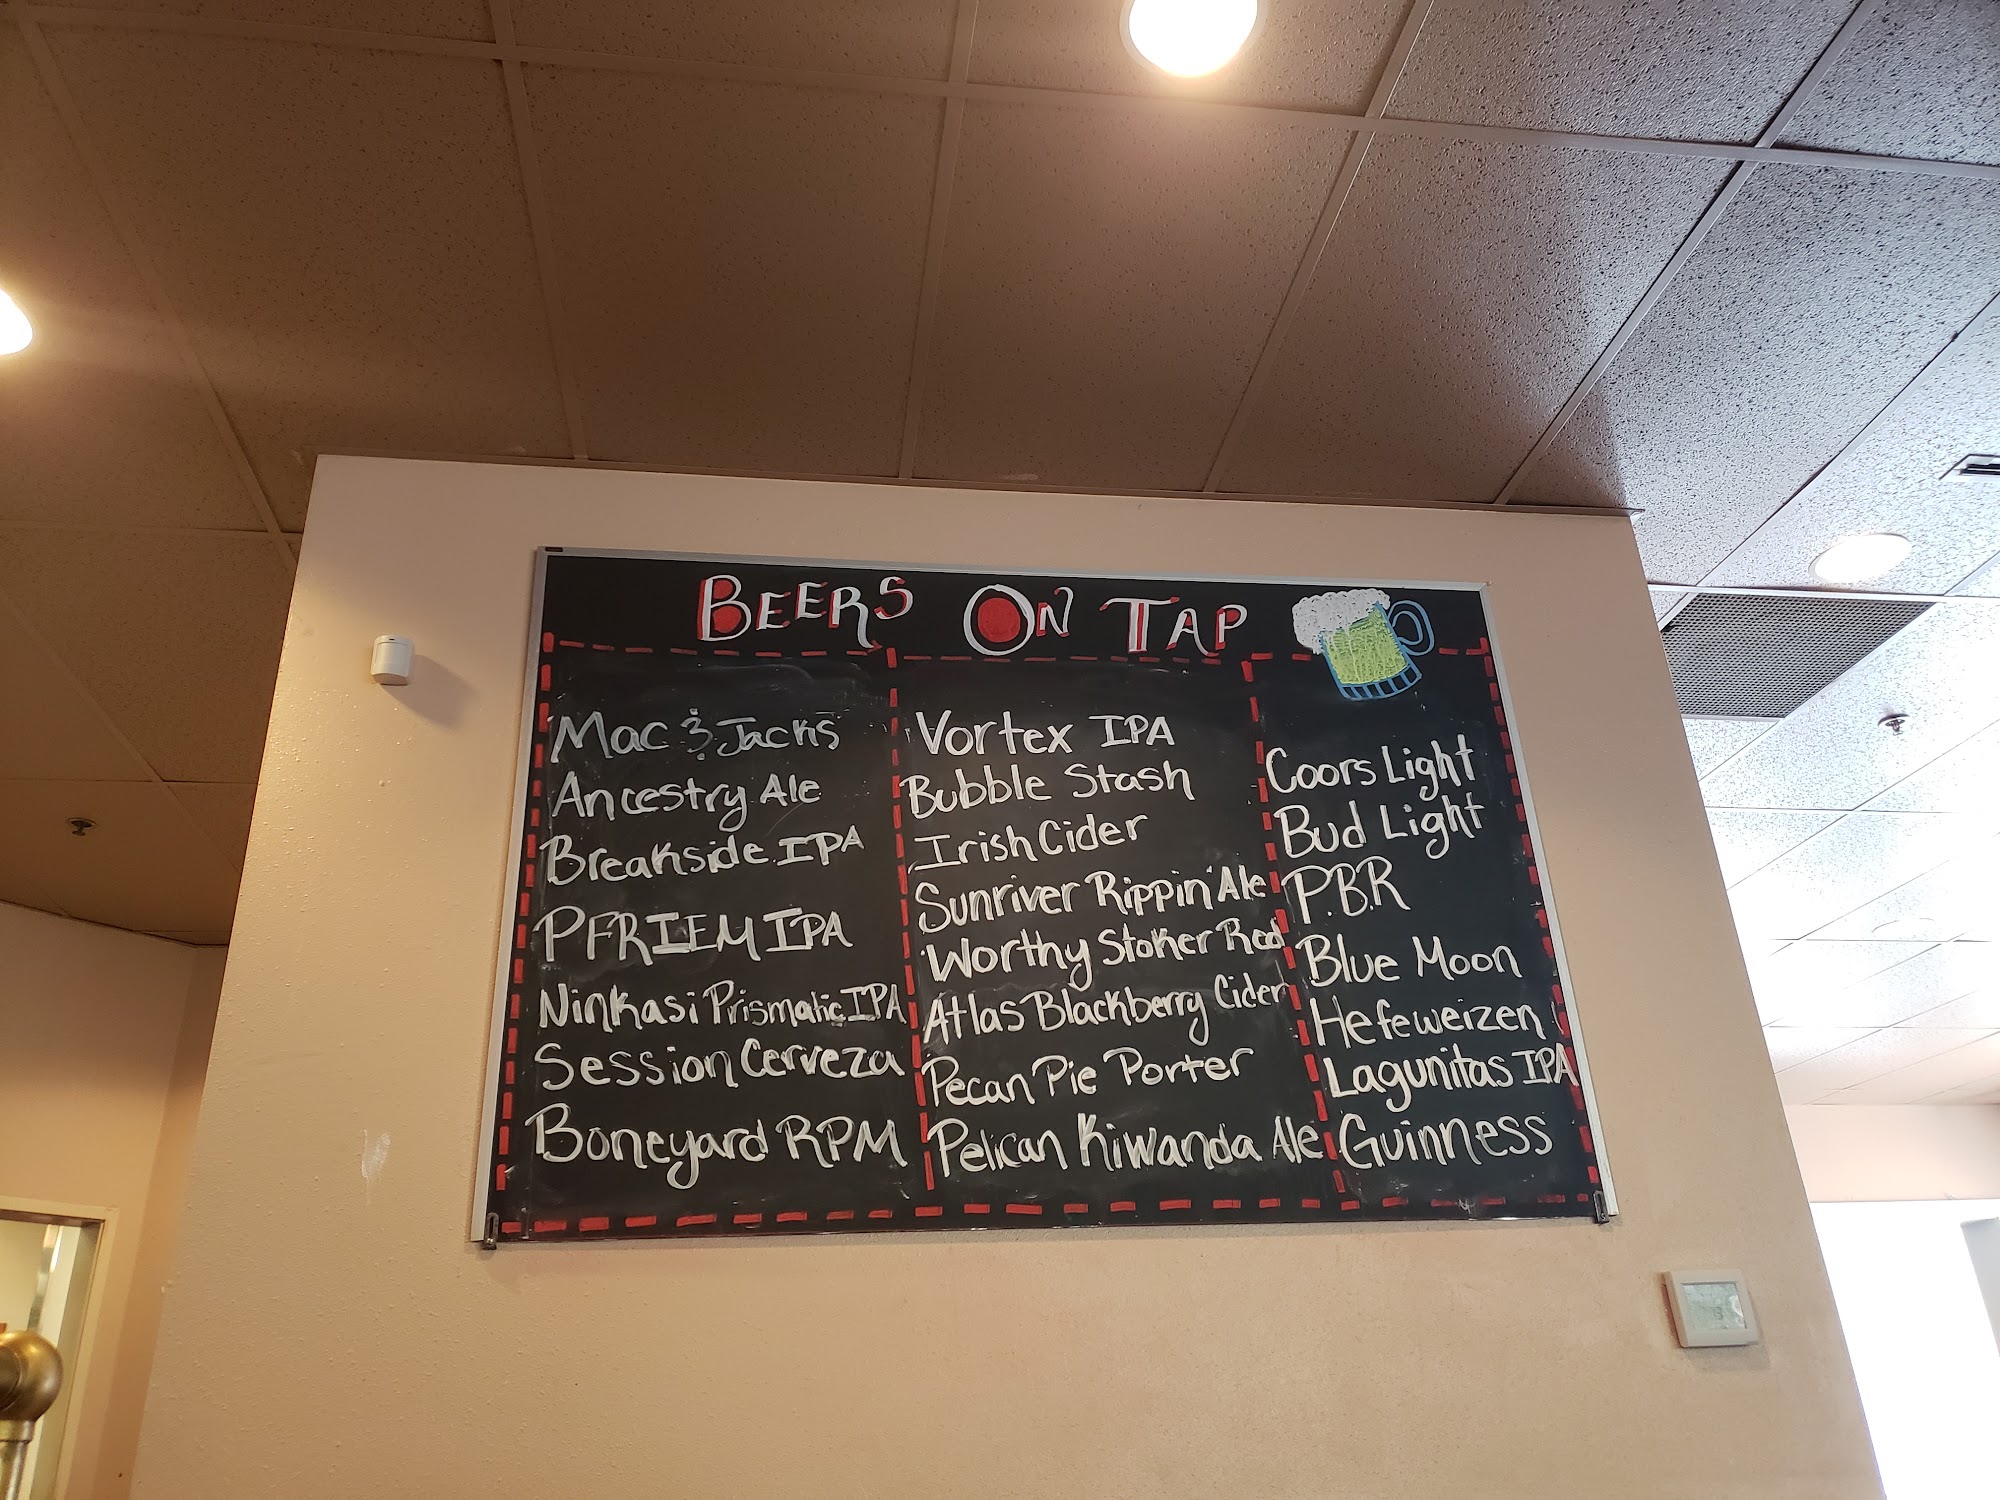 BEERS ON TAP
Mac & Jacks
Ancestry Ale
Breakside IPA
PFRIEM IPA
Ninkasi Prismatic IPA
Session Cerveza
Boneyard RPM
Vortex IPA
Bubble Stash
Irish Cider
Sunriver Rippin' Ale
Worthy Stoker Red
Atlas Blackberry Cider
Pecan Pie Porter
Pelican Kiwanda Ale
Coors Light
Bud Light
P.B.R
Blue Moon
Hefeweizen
Lagunitas IPA
Guinness